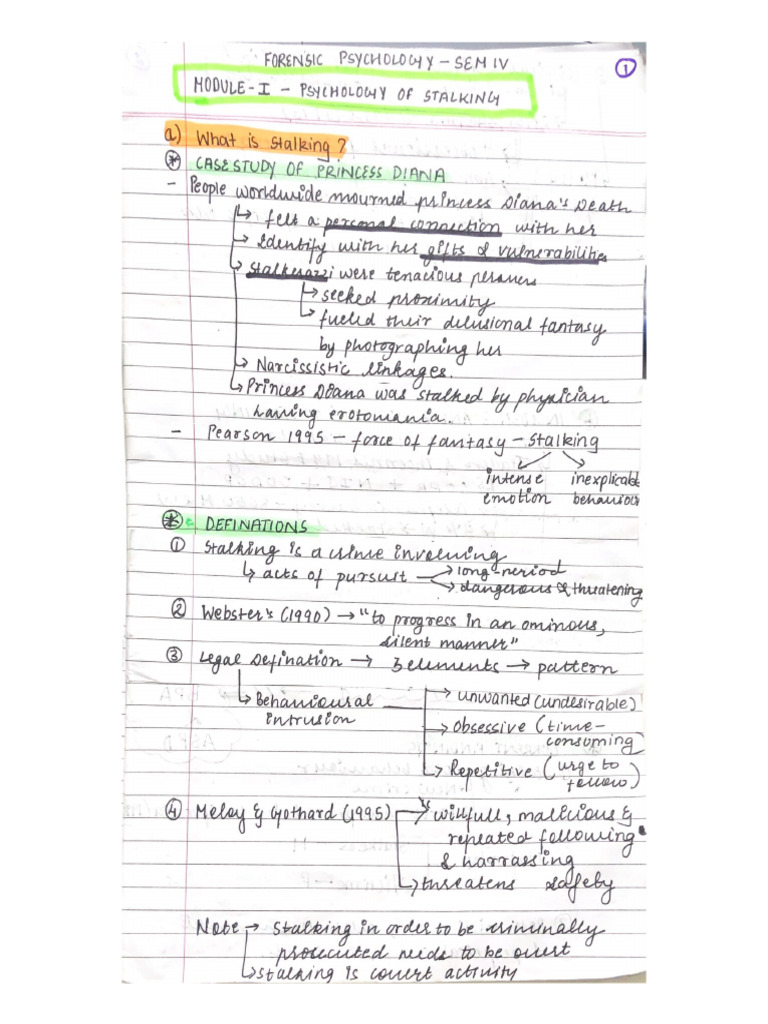 FORENSIC PSYCHOLOGY – SEM IV
1
MODULE-I – PSYCHOLOGY OF STALKING
a) What is stalking?
* CASE STUDY OF PRINCESS DIANA
- People worldwide mourned princess Diana's Death
↳ felt a personal connection with her
↳ Identify with her gifts & vulnerabilities
↳ Stalkerazzi were tenacious persuers
↳ seeked proximity
↳ fueled their delusional fantasy
by photographing her
↳ Narcissistic linkages.
↳ Princess Diana was stalked by physician
having erotomania.
- Pearson 1995 – force of fantasy – stalking
intense inexplicable
emotion behaviour
* DEFINATIONS
① Stalking is a crime involving
↳ acts of pursuit → long-period
→ dangerous & threatening
② Webster's (1990) → "to progress in an ominous,
silent manner"
③ Legal Defination → 3 elements → pattern
↳ Behavioural → unwanted (undesirable)
intrusion → Obsessive (time-
consuming)
↳ Repetitive (urge to
follow)
④ Meloy & Gothard (1995) → willfull, malicious &
repeated following
& harrassing
↳ threatens safety
Note → Stalking in order to be criminally
prosecuted needs to be overt
↳ stalking is covert activity